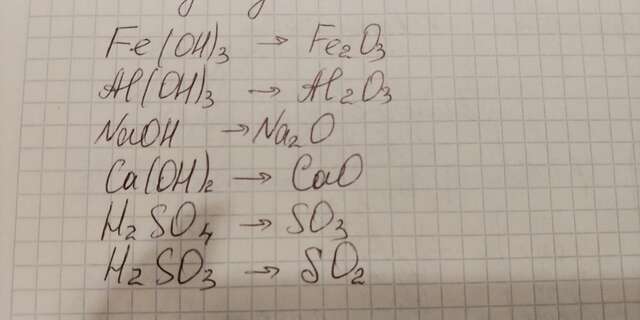 Fe(OH)₃ → Fe₂O₃
Al(OH)₃ → Al₂O₃
NaOH → Na₂O
Ca(OH)₂ → CaO
H₂SO₄ → SO₃
H₂SO₃ → SO₂